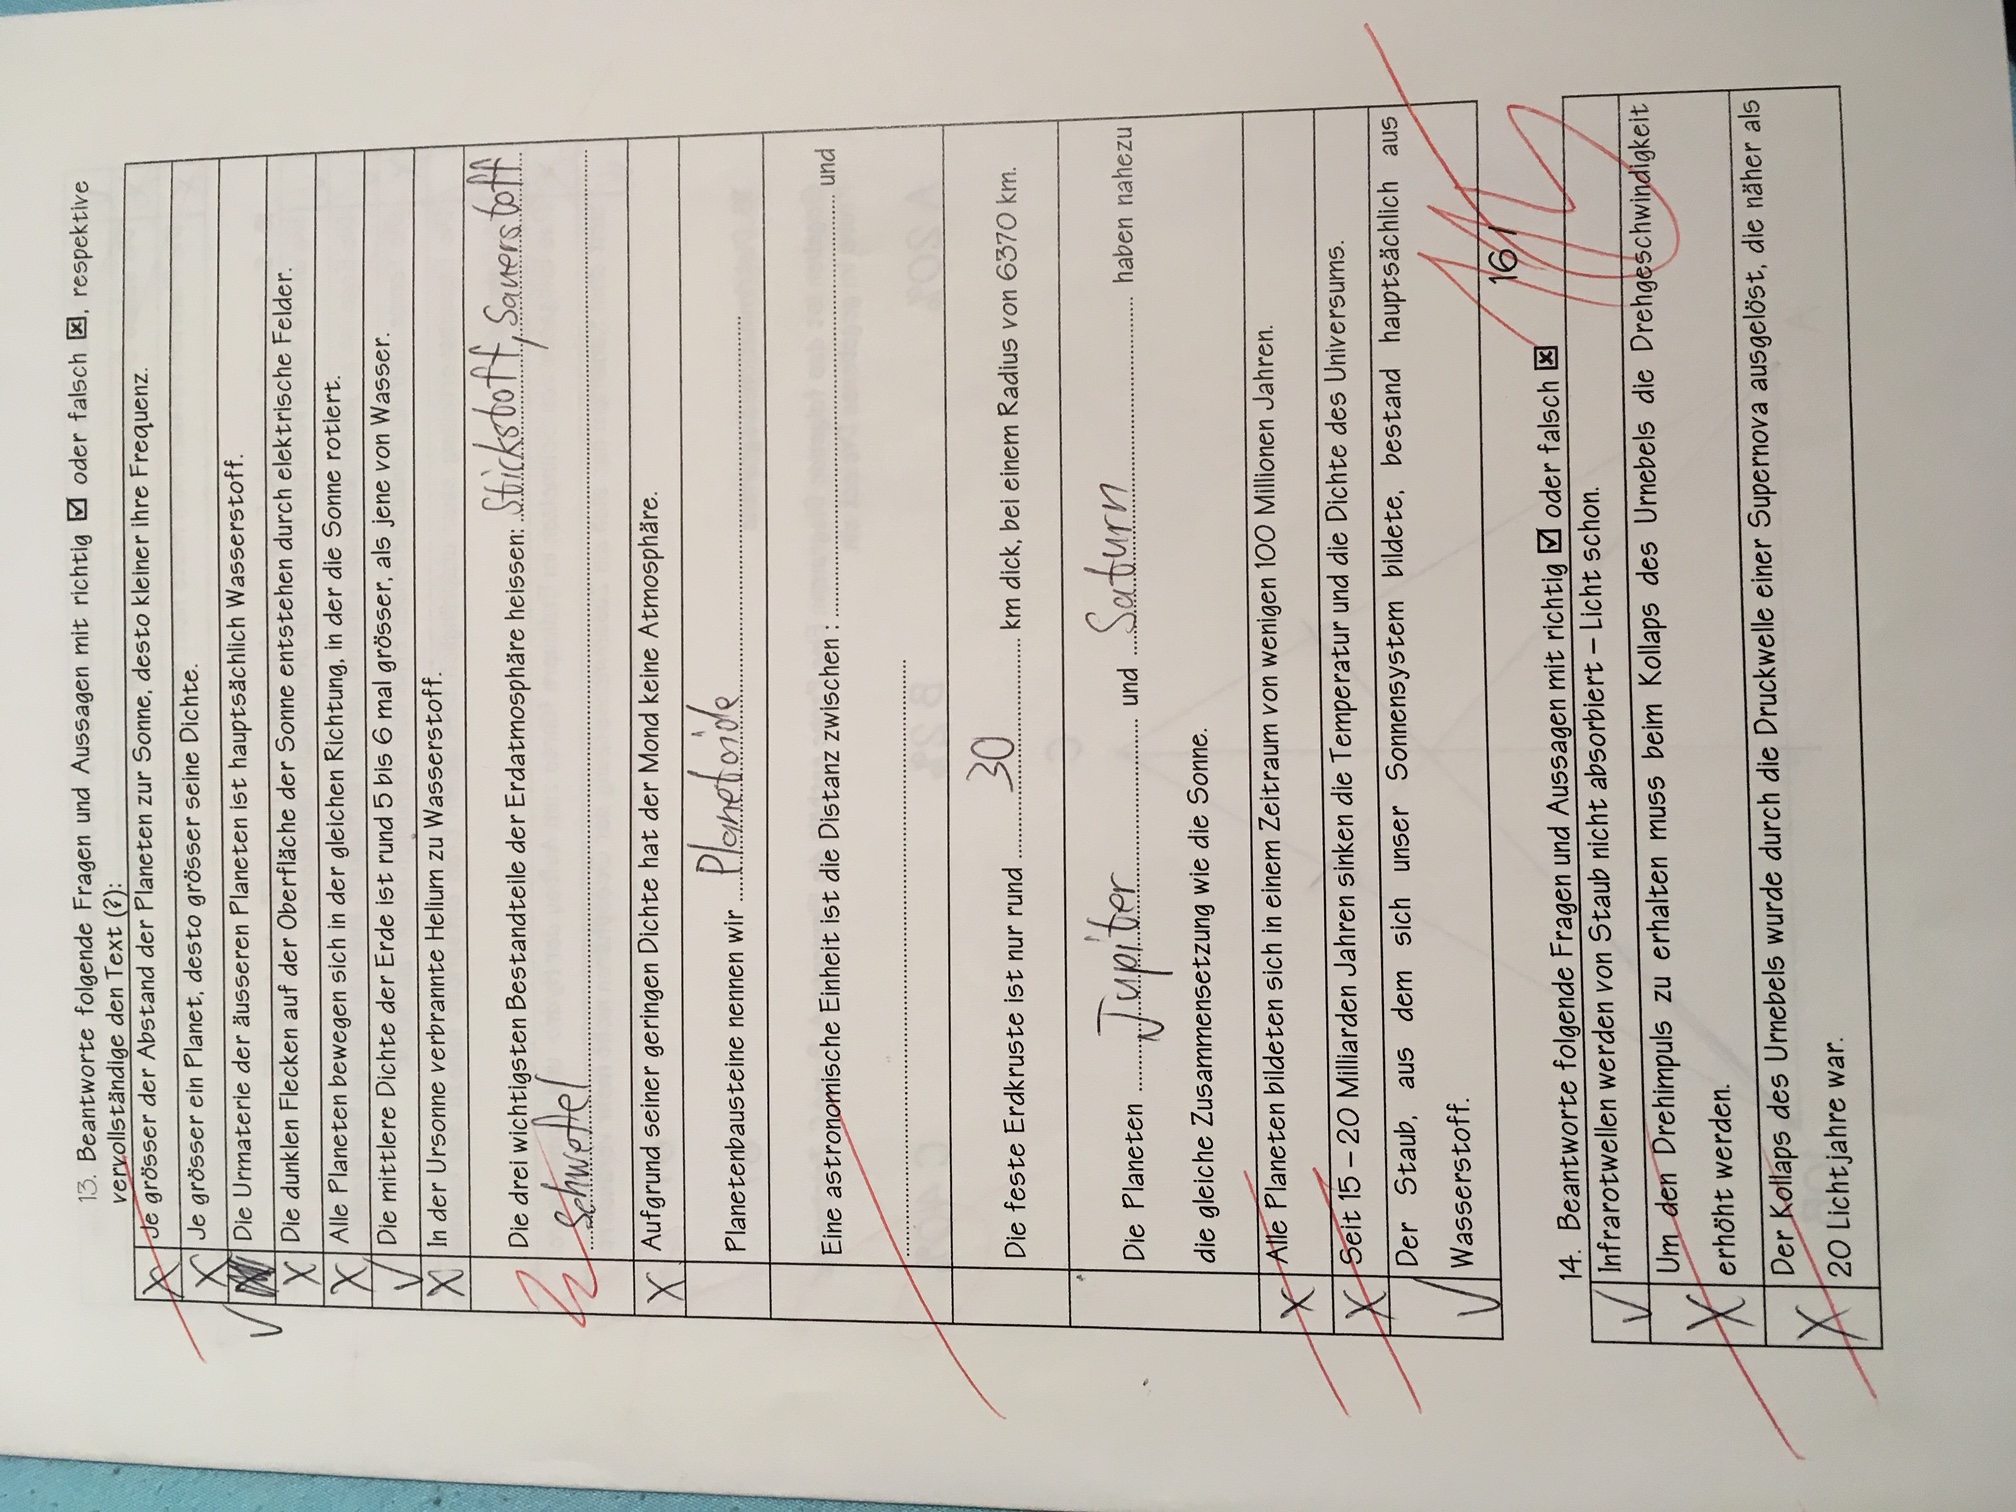 13. Beantworte folgende Fragen und Aussagen mit richtig ☑ oder falsch ☒, respektive
vervollständige den Text (?):
X Je grösser der Abstand der Planeten zur Sonne, desto kleiner ihre Frequenz.
X Je grösser ein Planet, desto grösser seine Dichte.
✓ Die Urmaterie der äusseren Planeten ist hauptsächlich Wasserstoff.
X Die dunklen Flecken auf der Oberfläche der Sonne entstehen durch elektrische Felder.
X Alle Planeten bewegen sich in der gleichen Richtung, in der die Sonne rotiert.
✓ Die mittlere Dichte der Erde ist rund 5 bis 6 mal grösser, als jene von Wasser.
X In der Ursonne verbrannte Helium zu Wasserstoff.
Die drei wichtigsten Bestandteile der Erdatmosphäre heissen: Stickstoff, Sauerstoff
Schwefel
X Aufgrund seiner geringen Dichte hat der Mond keine Atmosphäre.
Planetenbausteine nennen wir Planetoide
Eine astronomische Einheit ist die Distanz zwischen : ........ und
........
Die feste Erdkruste ist nur rund 30 km dick, bei einem Radius von 6370 km.
Die Planeten Jupiter und Saturn haben nahezu
die gleiche Zusammensetzung wie die Sonne.
X Alle Planeten bildeten sich in einem Zeitraum von wenigen 100 Millionen Jahren.
X Seit 15 – 20 Milliarden Jahren sinken die Temperatur und die Dichte des Universums.
✓ Der Staub, aus dem sich unser Sonnensystem bildete, bestand hauptsächlich aus
Wasserstoff.
16 /
14. Beantworte folgende Fragen und Aussagen mit richtig ☑ oder falsch ☒
✓ Infrarotwellen werden von Staub nicht absorbiert – Licht schon.
X Um den Drehimpuls zu erhalten muss beim Kollaps des Urnebels die Drehgeschwindigkeit
erhöht werden.
X Der Kollaps des Urnebels wurde durch die Druckwelle einer Supernova ausgelöst, die näher als
20 Lichtjahre war.